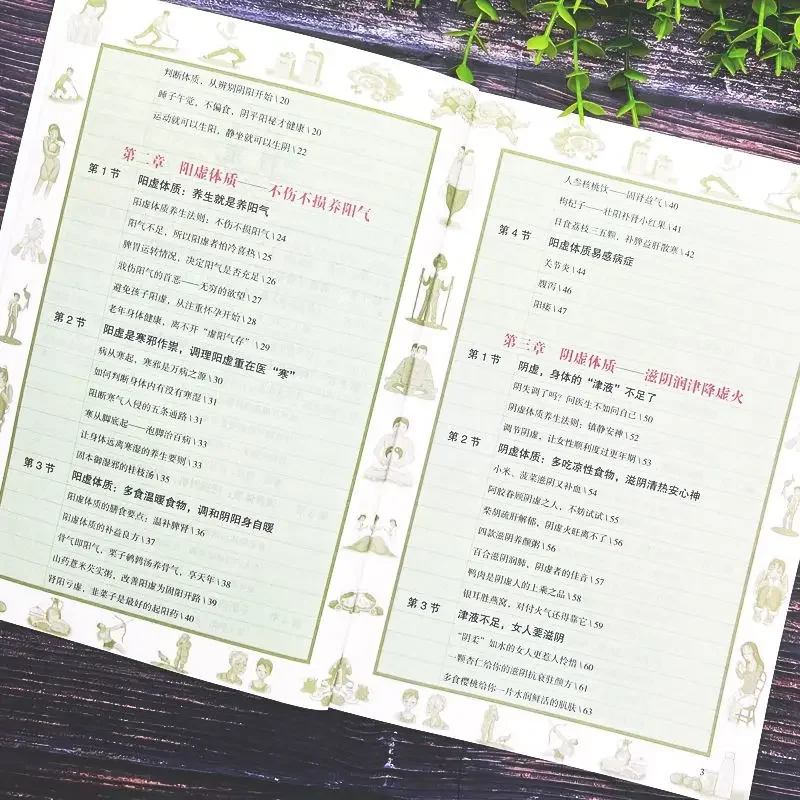 判断体质，从辨别阴阳开始\20
睡子午觉，不偏食，阴平阳秘才健康\20
运动就可以生阳，静坐就可以生阴\22
第二章 阳虚体质——不伤不损养阳气
第1节 阳虚体质：养生就是养阳气
阳虚体质养生法则：不伤不损阳气\24
阳气不足，所以阳虚者怕冷喜热\25
脾胃运转情况，决定阳气是否充足\26
戕伤阳气的首恶——无穷的欲望\27
避免孩子阳虚，从注重怀孕开始\28
老年身体健康，离不开“虚阳气存”\29
第2节 阳虚是寒邪作祟，调理阳虚重在医“寒”
病从寒起，寒邪是万病之源\30
如何判断身体内有没有寒湿\31
阻断寒气入侵的五条通路\31
寒从脚底起——泡脚治百病\33
让身体远离寒湿的养生要则\33
固本御湿邪的桂枝汤\35
第3节 阳虚体质：多食温暖食物，调和阴阳身自暖
阳虚体质的膳食要点：温补脾肾\36
阳虚体质的补益良方\37
骨气即阳气，栗子鹌鹑汤养骨气，享天年\38
山药薏米芡实粥，改善阳虚为固阳开路\39
肾阳亏虚，韭菜子是最好的起阳药\40
人参核桃饮——固肾益气\40
枸杞子——壮阳补肾小红果\41
日食荔枝三五颗，补脾益肝散寒\42
第4节 阳虚体质易感病症
关节炎\44
腹泻\46
阳痿\47
第三章 阴虚体质——滋阴润津降虚火
第1节 阴虚，身体的“津液”不足了
阴失调了吗？问医生不如问自己\50
阴虚体质养生法则：镇静安神\52
调节阴虚，让女性顺利度过更年期\53
第2节 阴虚体质：多吃凉性食物，滋阴清热安心神
小米、菠菜滋阴又补血\54
阿胶眷顾阴虚之人，不妨试试\55
柴胡疏肝解郁，阴虚火旺离不了\56
四款滋阴养颜粥\56
百合滋阴润肺，阴虚者的佳音\57
鸭肉是阴虚人的上乘之品\58
银耳胜燕窝，对付火气还得靠它\59
第3节 津液不足，女人要滋阴
“阴柔”如水的女人更惹人怜惜\60
一颗杏仁给你的滋阴抗衰驻颜方\61
多食樱桃给你一片水润鲜活的肌肤\63
3